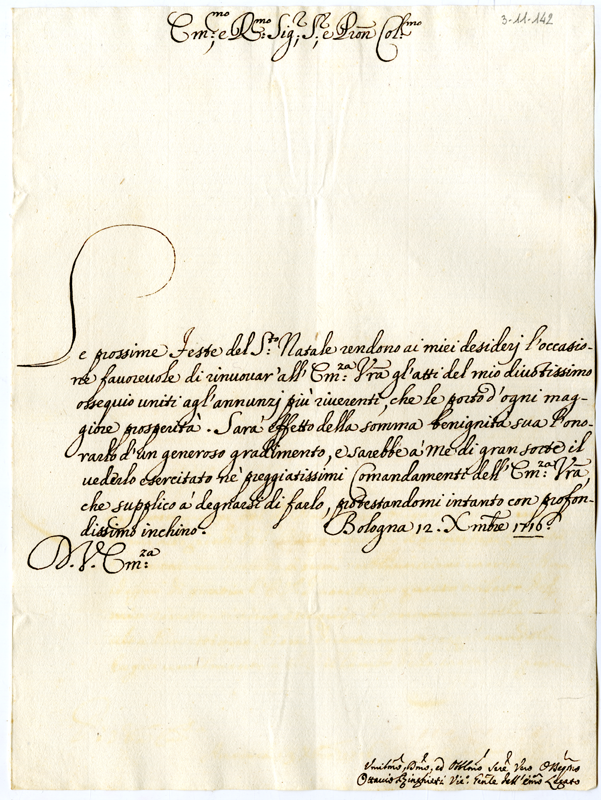 3-11-142
Em:mo, e R:mo Sig:r, S:r, e Pron Col:mo
Le prossime Feste del S:to Natale rendono ai miei desiderj l'occasio-
ne favorevole di rinuovar' all' Em:za Vra gl'atti del mio divotissimo
ossequio uniti agl'annunzj più riverenti, che le porto d'ogni mag-
giore prosperità. Sarà effetto della somma benignità sua l'ono-
rarlo d'un generoso gradimento, e sarebbe à me di gran sorte il
vederlo esercitato nè preggiatissimi Comandamenti dell' Em:za Vra,
che supplico à degnarsi di farlo, protestandomi intanto con profon-
dissimo inchino. Bologna 12. Xmbre 1716.
D. V. Em:za
Umilmo, Dmo, ed Obblmo Serv Vero Osseqmo
Ottavio